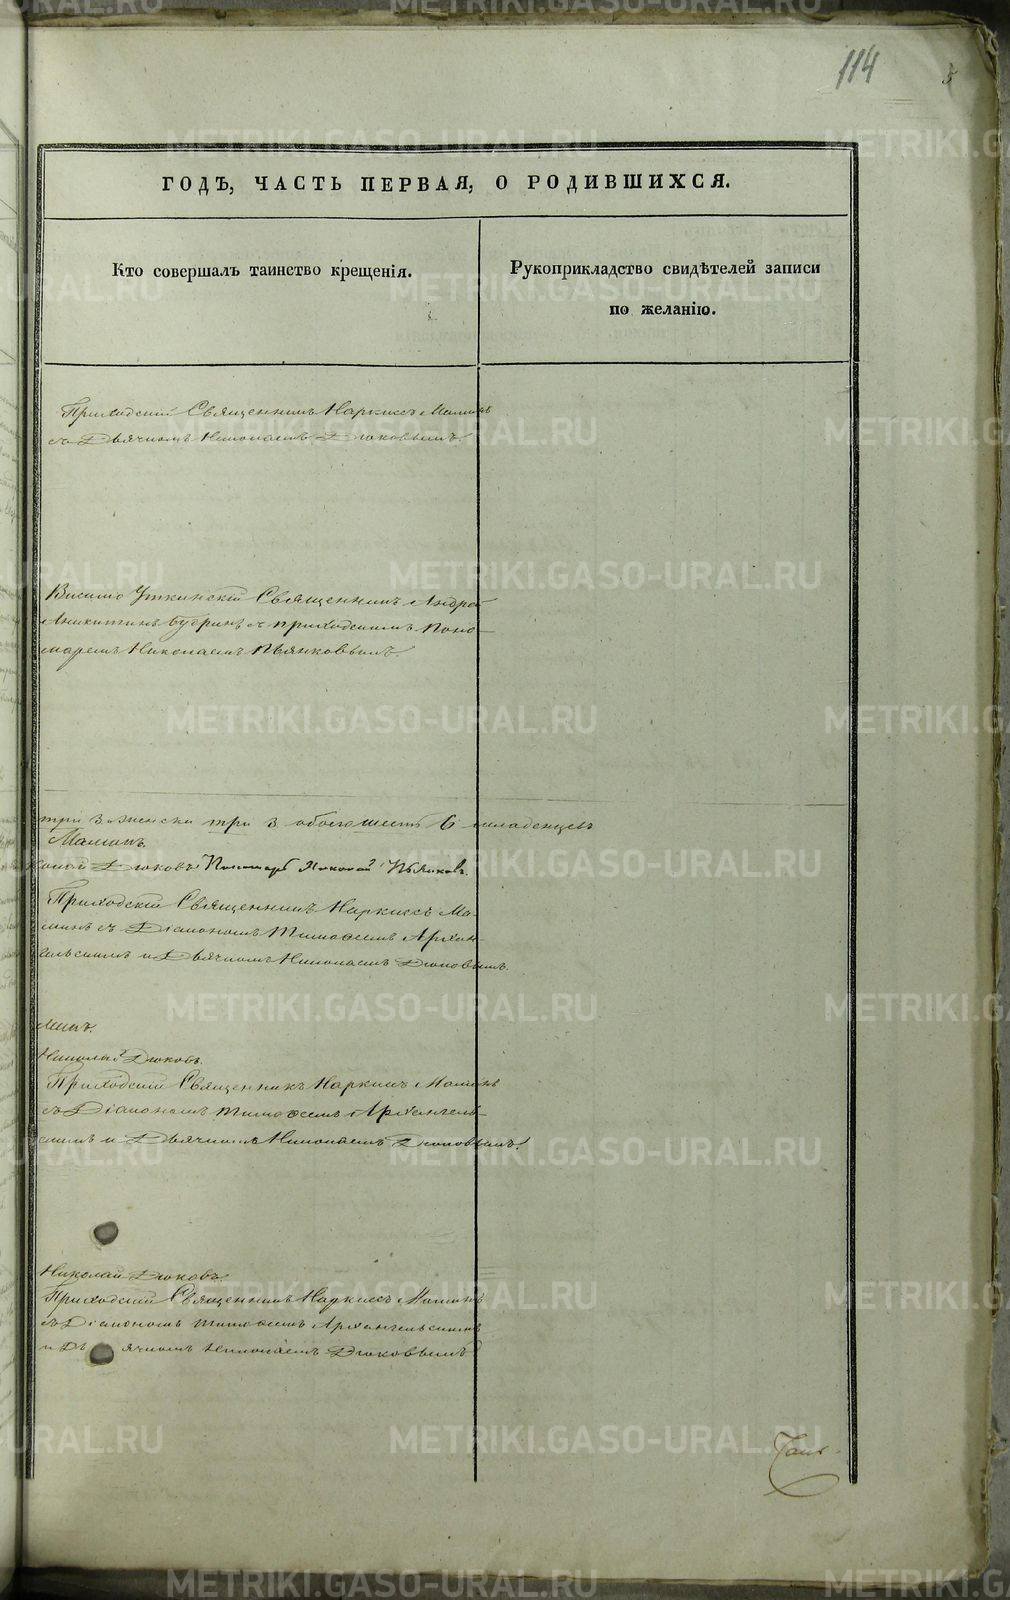 114
5
ГОДЪ, ЧАСТЬ ПЕРВАЯ, О РОДИВШИХСЯ.
Кто совершалъ таинство крещенія.
Рукоприкладство свидѣтелей записи
по желанію.
Приходскій Священникъ Наркисъ Маминъ
съ Дьячкомъ Николаемъ Дюковымъ.
Висимо Уткинскій Священникъ Андрей
Аникитинъ Бубринъ съ приходскимъ поно-
маремъ Николаемъ Пьянковымъ.
три 3 женска три 3 обоего шесть 6 младенцевъ
Маминъ.
Дюковъ Пономарь Николай Пьянковъ.
Приходскій Священникъ Наркисъ Ма-
минъ съ Діакономъ Тимофеемъ Архан-
гельскимъ и Дьячкомъ Николаемъ Дюковымъ.
минъ.
Николай Дюковъ.
Приходскій Священникъ Наркисъ Маминъ
съ Діакономъ Тимофеемъ Архангель-
скимъ и Дьячкомъ Николаемъ Дюковымъ.
Николай Дюковъ
Приходскій Священникъ Наркисъ Маминъ
съ Діакономъ Тимофеемъ Архангельскимъ
и Дьячкомъ Николаемъ Дюковымъ
METRIKI.GASO-URAL.RU